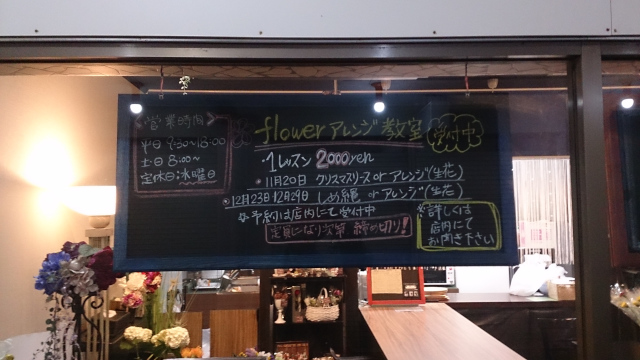 《営業時間》
平日 9:30~18:00
土日 8:00~
定休日:水曜日
flowerアレンジ教室
受付中
・1レッスン 2000yen
・11月20日 クリスマスリース or アレンジ(生花)
・12月23日 12月29日 しめ縄 or アレンジ(生花)
※予約は店内にて受付中
定員になり次第 締め切り!
※詳しくは
店内にて
お聞き下さい